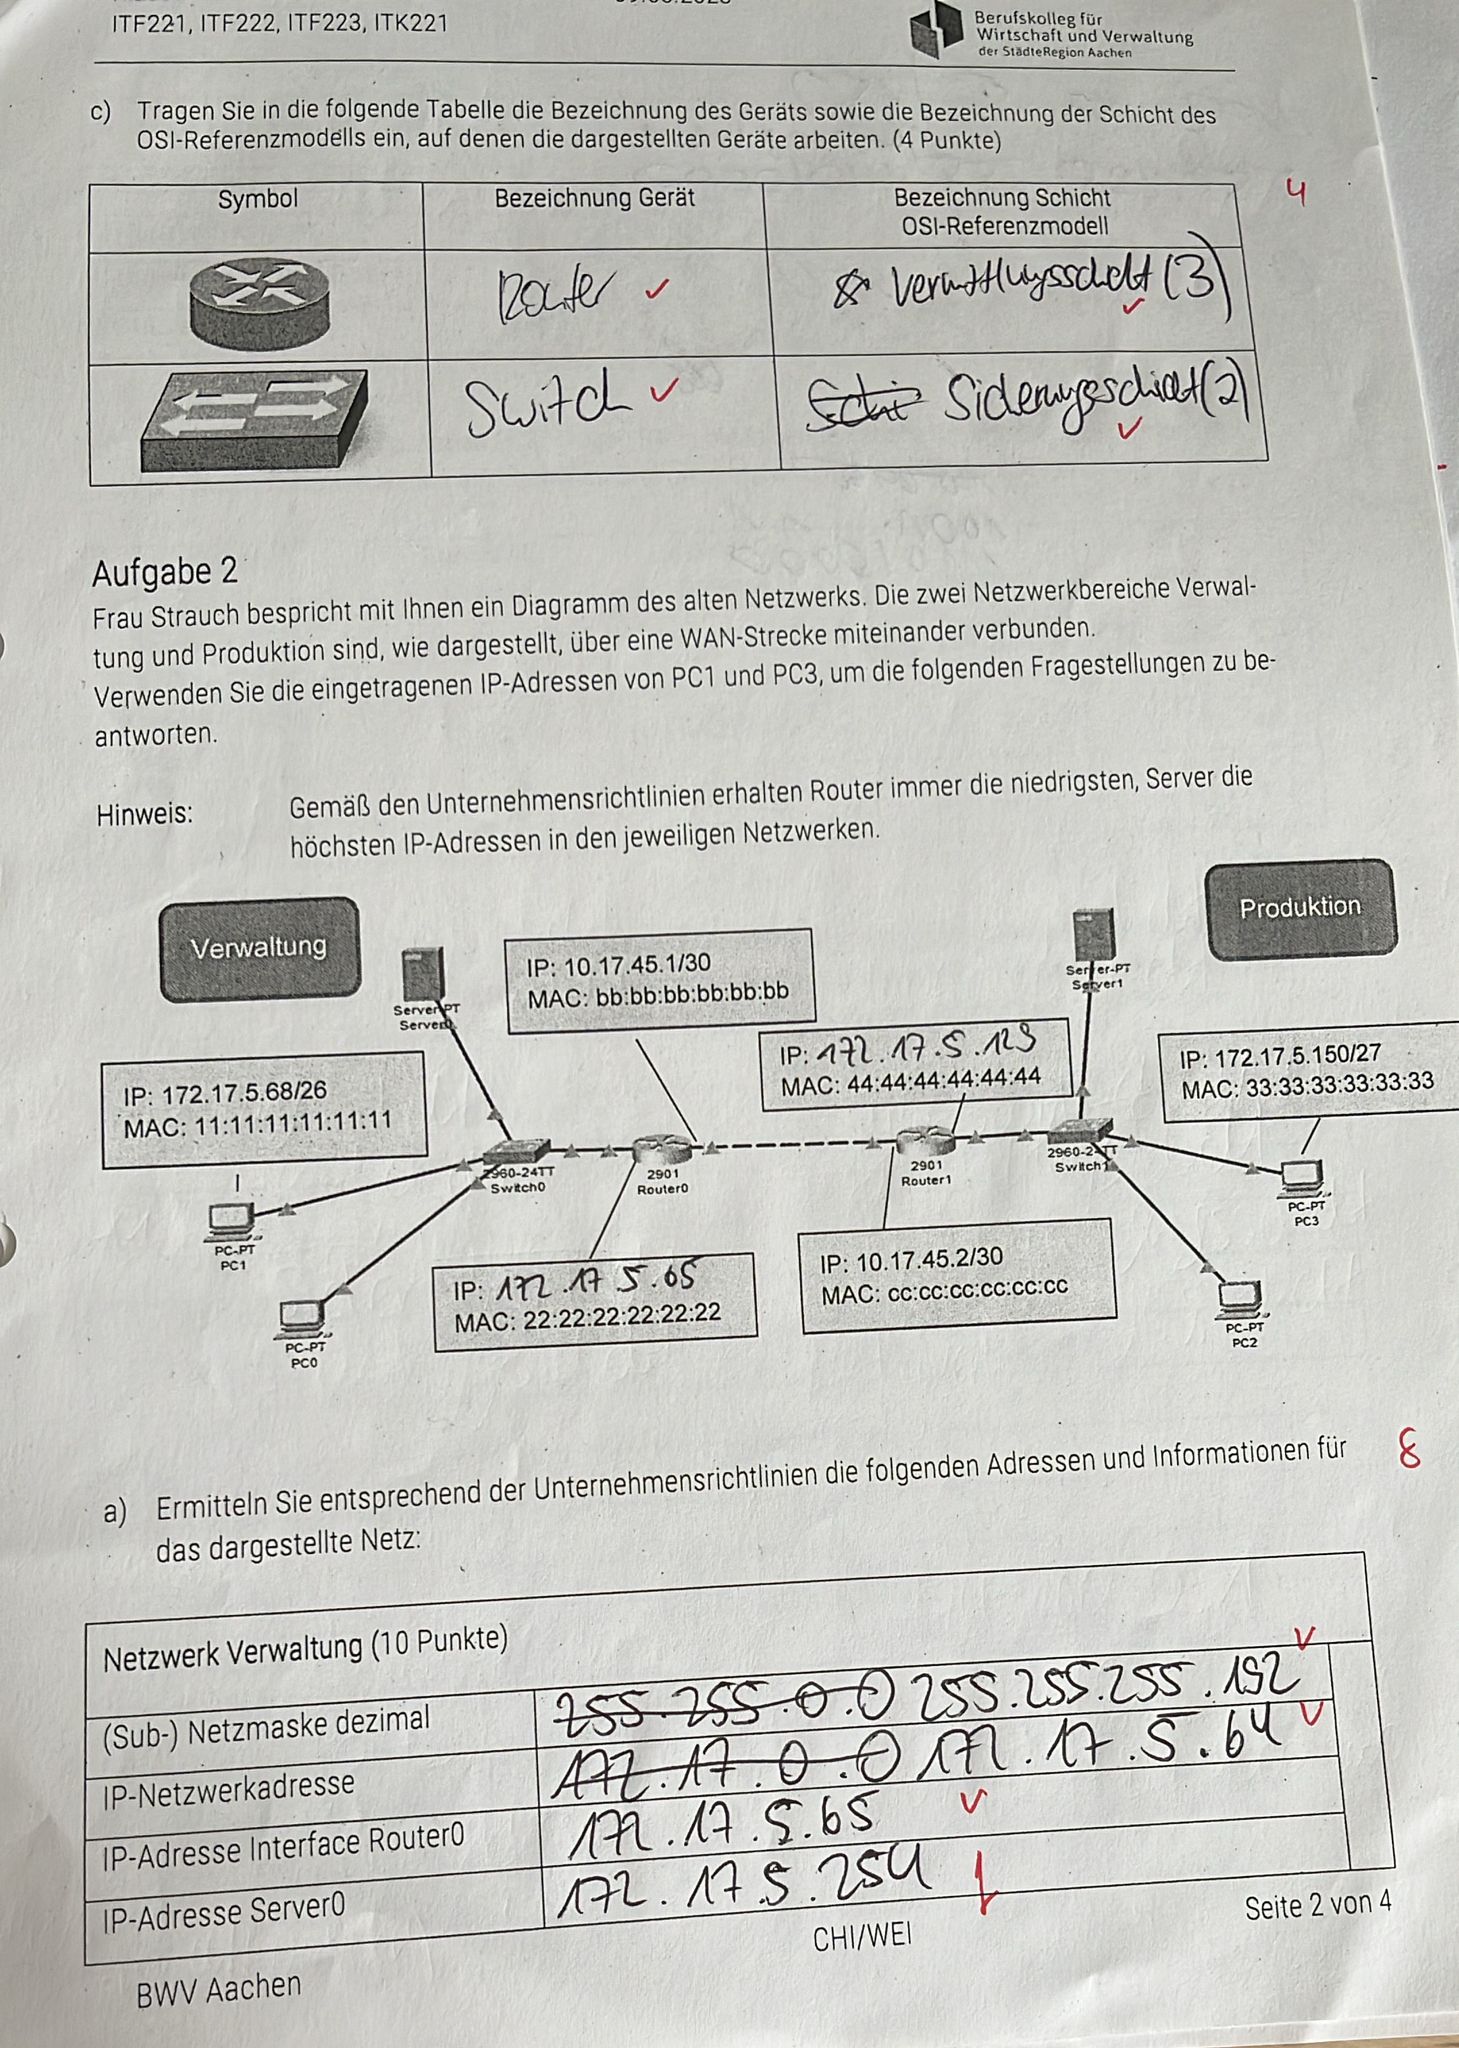 ITF221, ITF222, ITF223, ITK221
Berufskolleg für
Wirtschaft und Verwaltung
der StädteRegion Aachen
c) Tragen Sie in die folgende Tabelle die Bezeichnung des Geräts sowie die Bezeichnung der Schicht des
OSI-Referenzmodells ein, auf denen die dargestellten Geräte arbeiten. (4 Punkte)
4
Symbol Bezeichnung Gerät Bezeichnung Schicht
OSI-Referenzmodell
Router Vermittlungsschicht (3)
Switch Schi Sicherungsschicht (2)
Aufgabe 2
Frau Strauch bespricht mit Ihnen ein Diagramm des alten Netzwerks. Die zwei Netzwerkbereiche Verwal-
tung und Produktion sind, wie dargestellt, über eine WAN-Strecke miteinander verbunden.
Verwenden Sie die eingetragenen IP-Adressen von PC1 und PC3, um die folgenden Fragestellungen zu be-
antworten.
Hinweis: Gemäß den Unternehmensrichtlinien erhalten Router immer die niedrigsten, Server die
höchsten IP-Adressen in den jeweiligen Netzwerken.
Verwaltung
Produktion
Server-PT
Server0
IP: 10.17.45.1/30
MAC: bb:bb:bb:bb:bb:bb
Server-PT
Server1
IP: 172.17.5.129
MAC: 44:44:44:44:44:44
IP: 172.17.5.150/27
MAC: 33:33:33:33:33:33
IP: 172.17.5.68/26
MAC: 11:11:11:11:11:11
2960-24TT
Switch0
2901
Router0
2901
Router1
2960-24TT
Switch1
PC-PT
PC3
PC-PT
PC1
IP: 172.17.5.65
MAC: 22:22:22:22:22:22
IP: 10.17.45.2/30
MAC: cc:cc:cc:cc:cc:cc
PC-PT
PC2
PC-PT
PC0
a) Ermitteln Sie entsprechend der Unternehmensrichtlinien die folgenden Adressen und Informationen für
das dargestellte Netz:
8
Netzwerk Verwaltung (10 Punkte)
(Sub-) Netzmaske dezimal 255.255.0.0 255.255.255.192
IP-Netzwerkadresse 172.17.0.0 172.17.5.64
IP-Adresse Interface Router0 172.17.5.65
IP-Adresse Server0 172.17.5.254
CHI/WEI
Seite 2 von 4
BWV Aachen